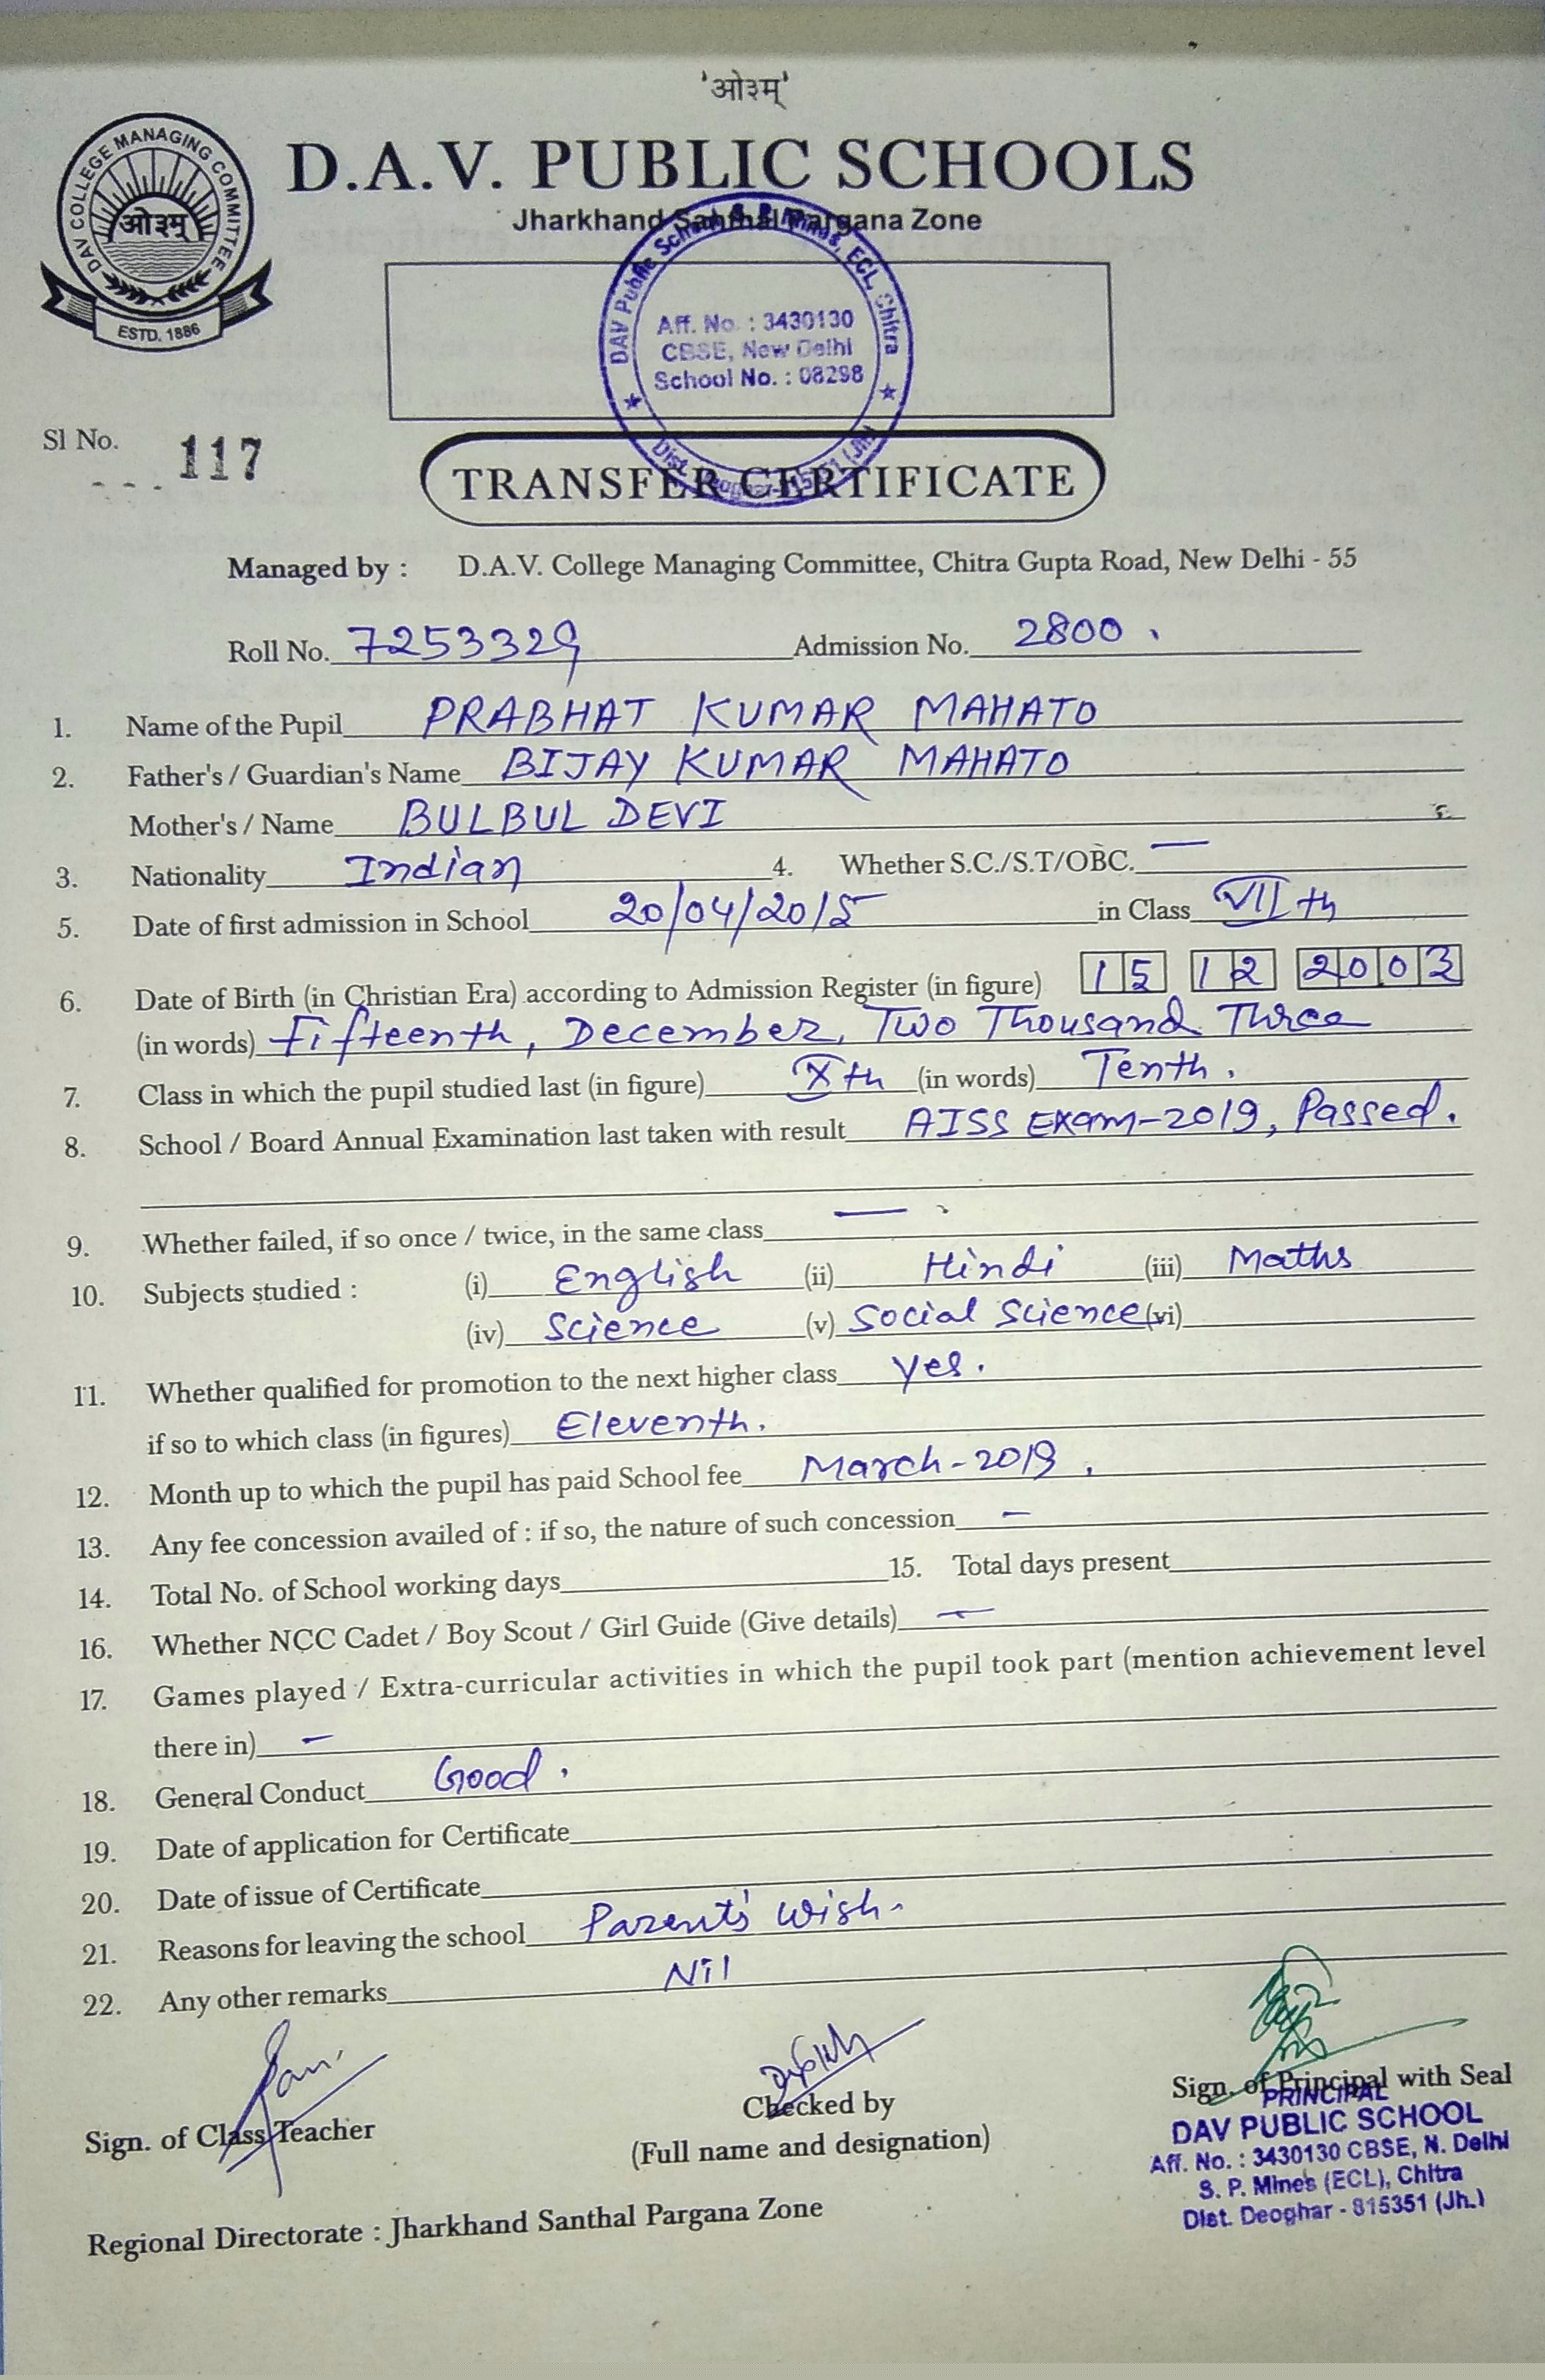 'ओ३म्'
DAV COLLEGE MANAGING COMMITTEE
ओ३म्
ESTD. 1886
D.A.V. PUBLIC SCHOOLS
Jharkhand Santhal Pargana Zone
DAV Public School, S. P. Mines, ECL, Chitra
Aff. No. : 3430130
CBSE, New Delhi
School No. : 08298
Dist. Deoghar-815351 (Jh.)
Sl No. 117
TRANSFER CERTIFICATE
Managed by : D.A.V. College Managing Committee, Chitra Gupta Road, New Delhi - 55
Roll No. 7253329 Admission No. 2800.
1. Name of the Pupil PRABHAT KUMAR MAHATO
2. Father's / Guardian's Name BIJAY KUMAR MAHATO
Mother's / Name BULBUL DEVI
3. Nationality Indian 4. Whether S.C./S.T/OBC. —
5. Date of first admission in School 20/04/2015 in Class VIIth
6. Date of Birth (in Christian Era) according to Admission Register (in figure) 15 12 2003
(in words) Fifteenth, December, Two Thousand Three
7. Class in which the pupil studied last (in figure) Xth (in words) Tenth.
8. School / Board Annual Examination last taken with result AISS Exam-2019, Passed.
9. Whether failed, if so once / twice, in the same class —
10. Subjects studied : (i) English (ii) Hindi (iii) Maths
(iv) Science (v) Social Science (vi)
11. Whether qualified for promotion to the next higher class yes.
if so to which class (in figures) Eleventh.
12. Month up to which the pupil has paid School fee March-2019.
13. Any fee concession availed of : if so, the nature of such concession —
14. Total No. of School working days 15. Total days present
16. Whether NCC Cadet / Boy Scout / Girl Guide (Give details) —
17. Games played / Extra-curricular activities in which the pupil took part (mention achievement level
there in) —
18. General Conduct Good.
19. Date of application for Certificate
20. Date of issue of Certificate
21. Reasons for leaving the school Parent's Wish.
22. Any other remarks Nil
Sign. of Class Teacher
Checked by
(Full name and designation)
Sign. of Principal with Seal
PRINCIPAL
DAV PUBLIC SCHOOL
Aff. No. : 3430130 CBSE, N. Delhi
S. P. Mines (ECL), Chitra
Dist. Deoghar - 815351 (Jh.)
Regional Directorate : Jharkhand Santhal Pargana Zone